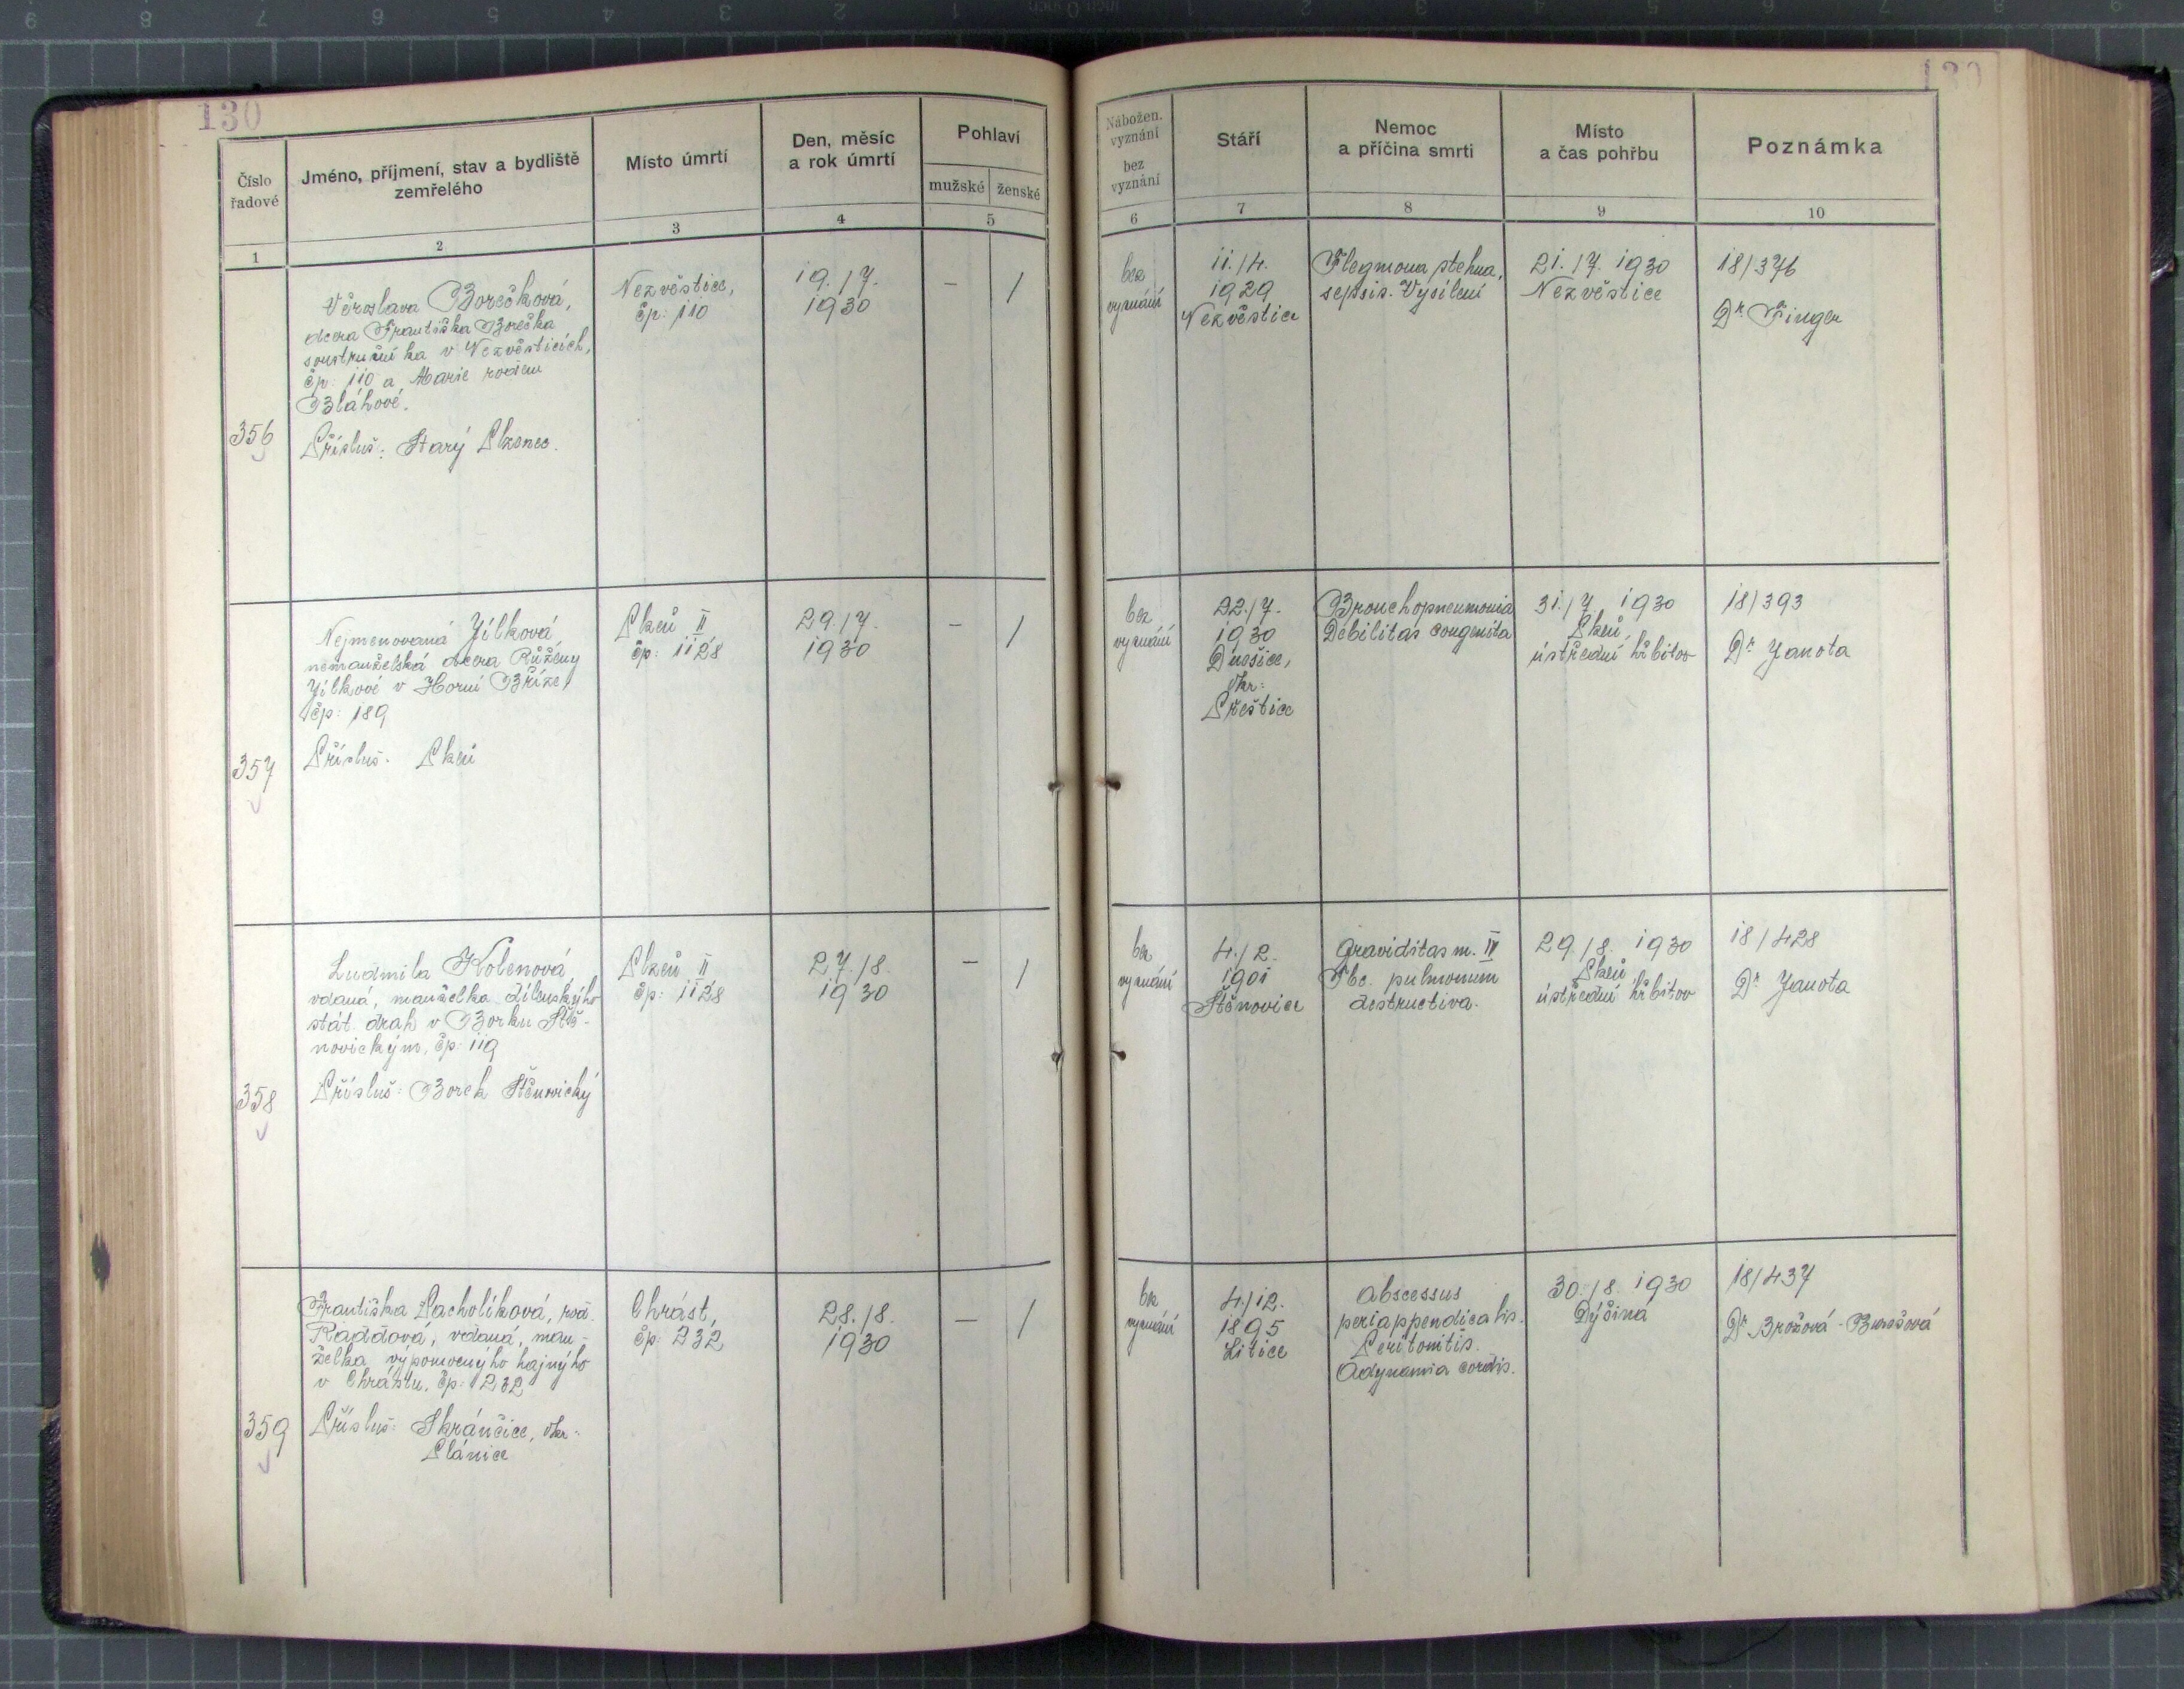 130
130
Číslo
řadové
Jméno, příjmení, stav a bydliště
zemřelého
Místo úmrtí
Den, měsíc
a rok úmrtí
Pohlaví
mužské ženské
Nábožen.
vyznání
bez
vyznání
Stáří
Nemoc
a příčina smrti
Místo
a čas pohřbu
Poznámka
1
2
3
4
5
6
7
8
9
10
356
Věroslava Borečková,
dcera Františka Borečka
soustružníka v Nezvěsticích,
čp: 110 a Marie rodem
Bláhové.
Přísluš: Starý Plzenec.
Nezvěstice,
čp: 110
19./7.
1930
–
/
bez
vyznání
11./4.
1929
Nezvěstice
Flegmona stehna,
sepsis. Vysílení
21./7. 1930
Nezvěstice
18/376
Dr Finger
357
Nejmenovaná Jílková
nemanželská dcera Růženy
Jílkové v Horní Bříze,
čp: 189
Přísluš: Plzeň
Plzeň II
čp: 1128
29./7.
1930
–
/
bez
vyznání
22./7.
1930
Dnešice,
okr:
Přeštice
Bronchopneumonia
Debilitas congenita
31./7. 1930
Plzeň,
ústřední hřbitov
18/393
Dr Janota
358
Ludmila Kolenová,
vdaná, manželka dílenského
stát. drah v Borku Ště-
novickým, čp: 119
Přísluš: Borek Štěnovický
Plzeň II
čp: 1128
27./8.
1930
–
/
bez
vyznání
4./2.
1901
Štěnovice
Graviditas m. IV
Tbc. pulmonum
destructiva.
29./8. 1930
Plzeň
ústřední hřbitov
18/428
Dr Janota
359
Františka Pacholíková, roz.
Raddová, vdaná, man-
želka výpomocného hajného
v Chrástu, čp: 232
Přísluš: Skránčice, okr:
Plánice
Chrást,
čp: 232
28./8.
1930
–
/
bez
vyznání
4./12.
1895
Litice
Abscessus
periappendicalis.
Peritonitis.
Adynamia cordis.
30./8. 1930
Dýšina
18/437
Dr Brožová-Burešová